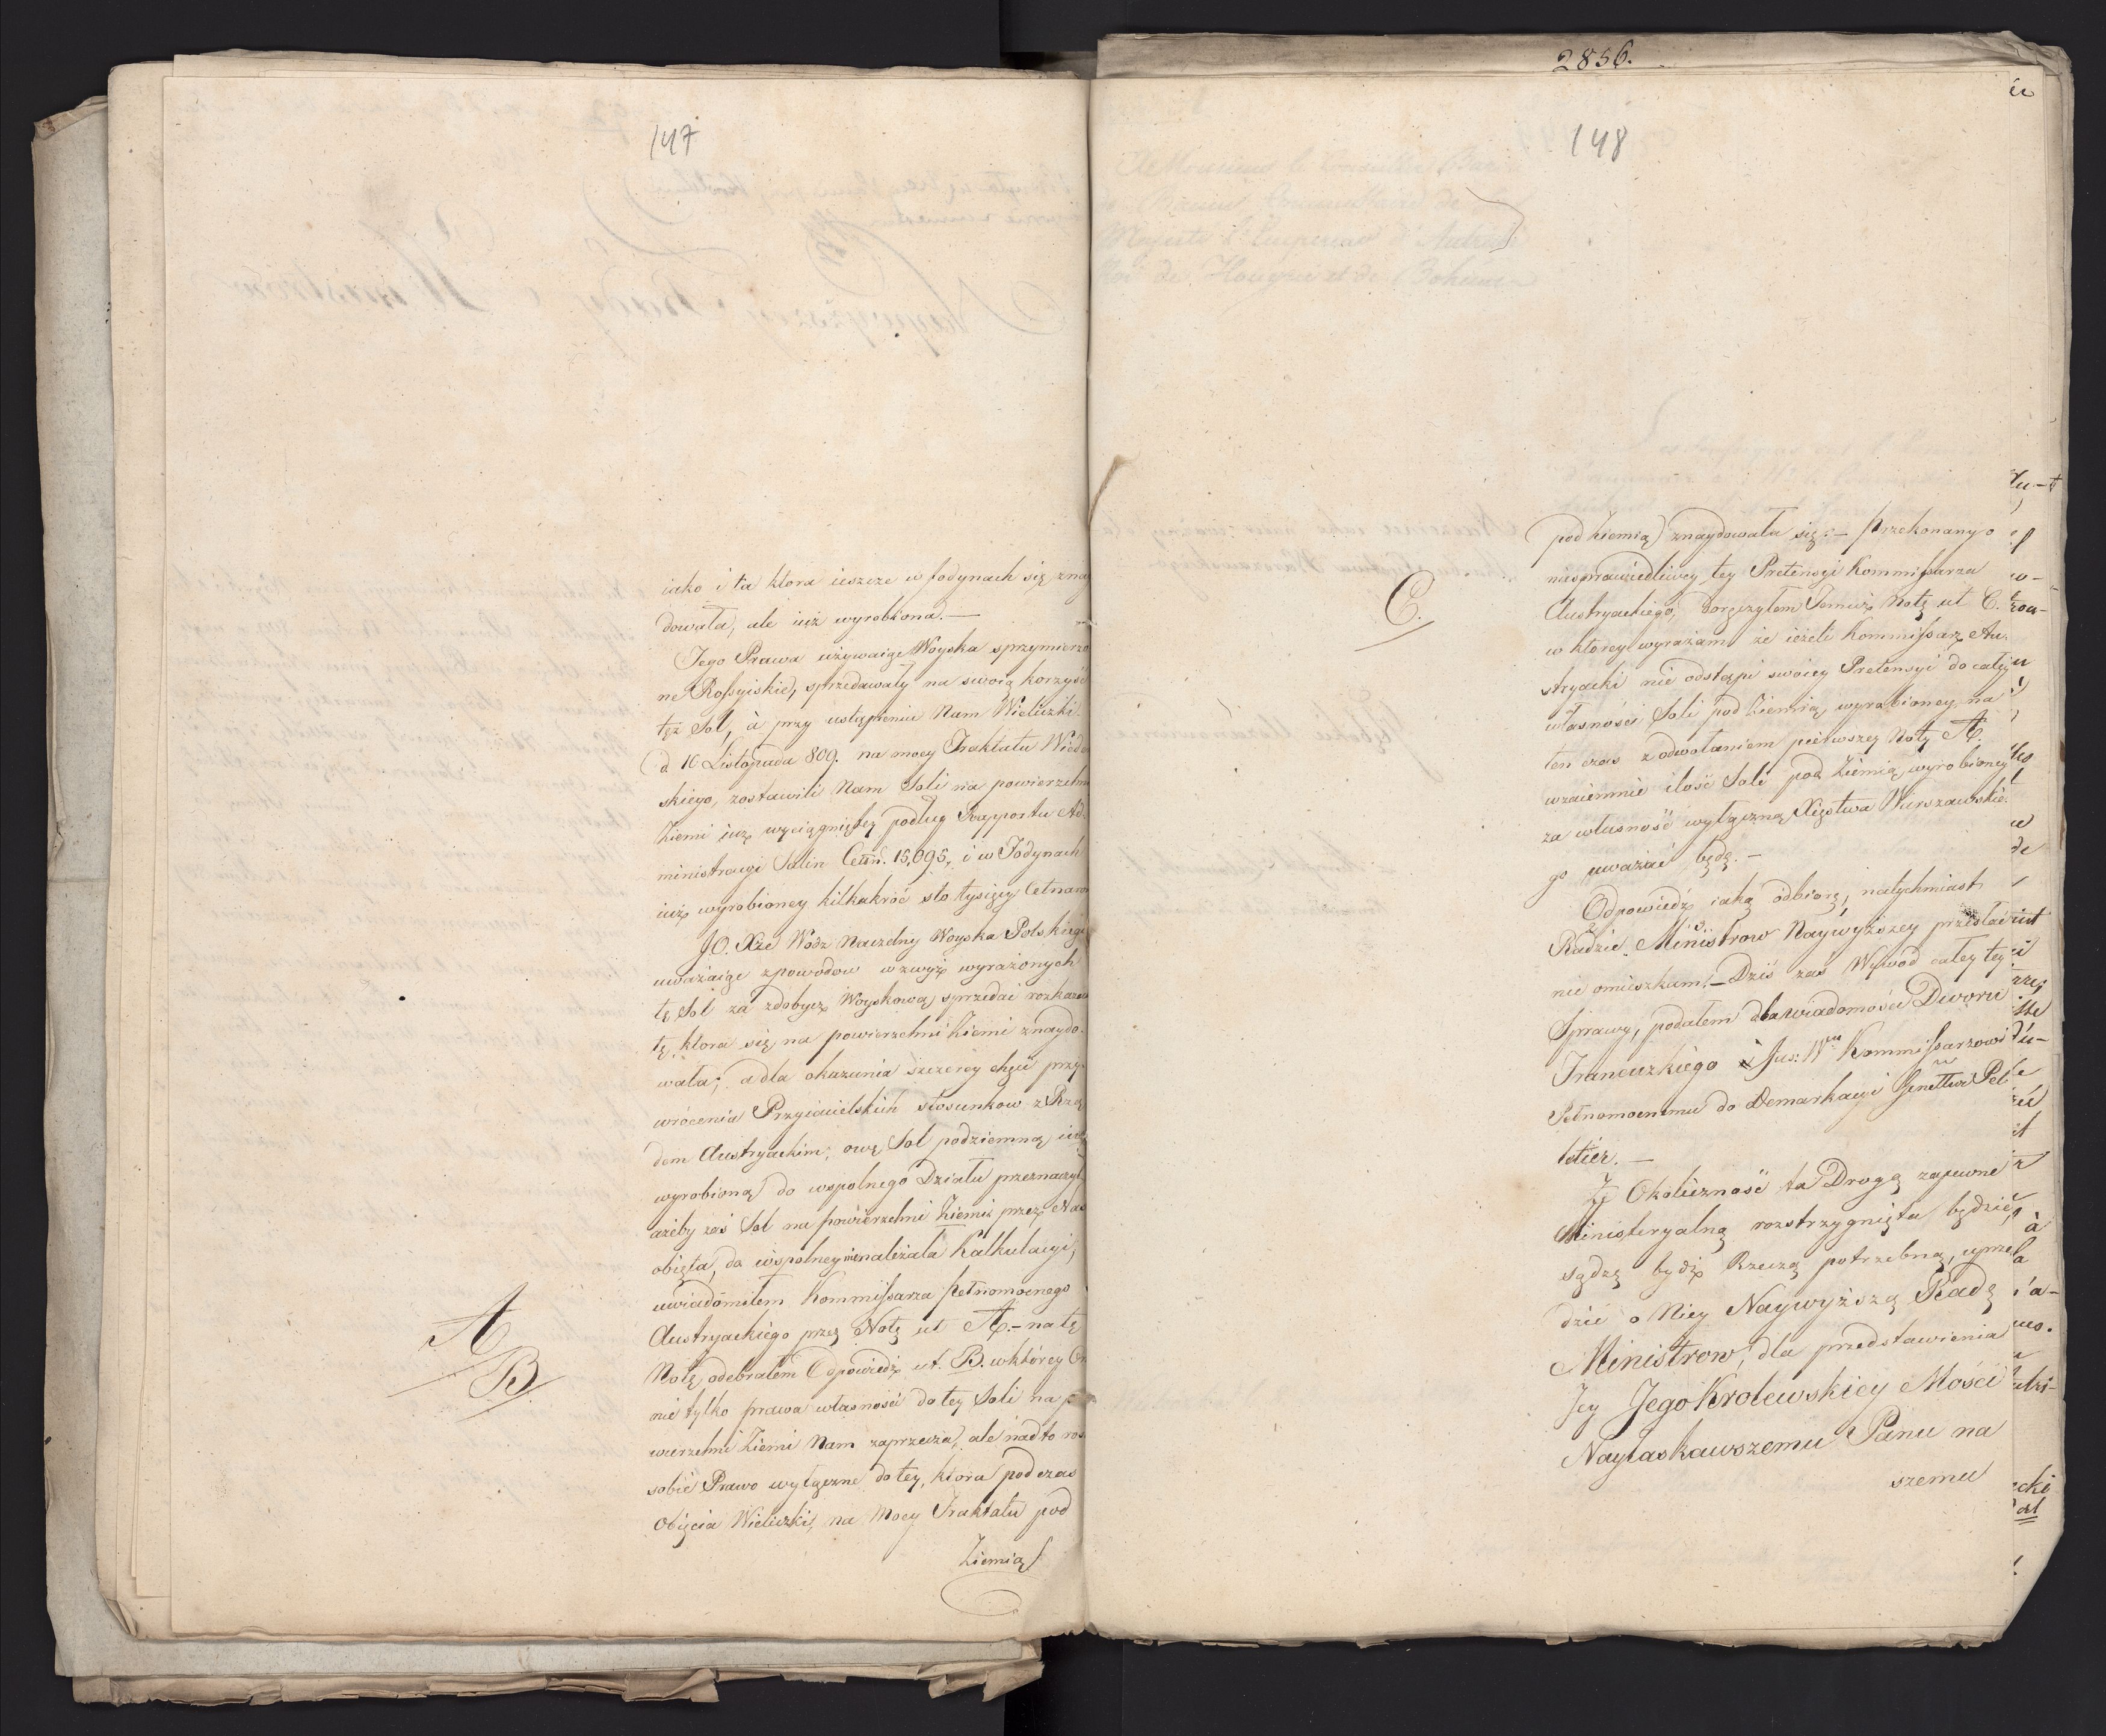 147
iako i ta ktora ieszcze w fodynach się znay
dowała, ale iuż wyrobiona.—
Tego Prawa używaiąc Woyska sprzymierzo
ne Rossyiskie, sprzedawały na swoią korzyść
tęż Sol, à przy ustąpieniu Nam Wieliczki
d 16 Listopada 809. na mocy Traktatu Wiede
skiego, zostawili Nam Soli na powierzchni
Ziemi iuż wyciągniętey podług Rapportu Ad-
ministracyi Salin Cetn. 15,095, i w Fodynach
iuż wyrobioney kilkakroć sto tysięcy Cetnarow
JO. Xże Wódz Naczelny Woyska Polskiego
uważaiąc z powodow wzwyż wyrażonych
tę Sol za zdobycz Woyskową, sprzedać rozkazał
tę, ktora się na powierzchni Ziemi znaydo-
wała; a dla okazania szczerey chęci przy-
wrócenia Przyiacielskich stosunkow z Rzą
dem Austryackim, owę Sol podziemną iuż
wyrobioną do wspolnego Działu przeznaczył
ażeby zaś Sol na powierzchni Ziemi przez Nas
obięta, do wspolney nienależała Kalkulacyi,
uwiadomiłem Kommissarza pełnomocnego
Austryackiego przez Notę ut A.— na tę
A
Notę odebrałem Odpowiedź ut. B. w ktorey On
B.
nie tylko prawa własności do tey Soli na p
wierzchni Ziemi Nam zaprzecza, ale nadto ro
sobie Prawo wyłączne do tey, ktora pod czas
Obięcia Wieliczki, na Mocy Traktatu pod
Ziemią
2856.
148
pod Ziemią znaydowała się.— Przekonany o
niesprawiedliwey tey Pretensyi Kommissarza
Austryackiego, doręczyłem Temuż Notę ut C.
C.
w ktorey wyrażam że ieżeli Kommissarz Au-
stryacki nie odstąpi swoiey Pretensyi do całey
własności Soli pod Ziemią wyrobioney, na
ten czas z odwołaniem pierwszey Noty A.
wzaiemnie ilość Soli pod Ziemią wyrobioney
za własność wyłączną Xięstwa Warszawskie-
go uważać będę.—
Odpowiedź iaką odbiorę, natychmiast
Radzie Ministrow Naywyższey przesłać
nie omieszkam.— Dziś zaś Wywód całey tey
Sprawy, podałem do wiadomości Dworu
Francuzkiego i Jus: Wmu Kommissarzowi
Pełnomocnemu do Demarkacyi Genettowi Pel
letier.—
Że Okoliczność ta Drogą zapewne
Ministeryalną rozstrzygnięta będzie,
sądzę bydź Rzeczą potrzebną, uprze
dzić o Niey Naywyższą Radę
Ministrow, dla przedstawienia
Jey Jego Krolewskiey Mości
Nayłaskawszemu Panu na
szemu